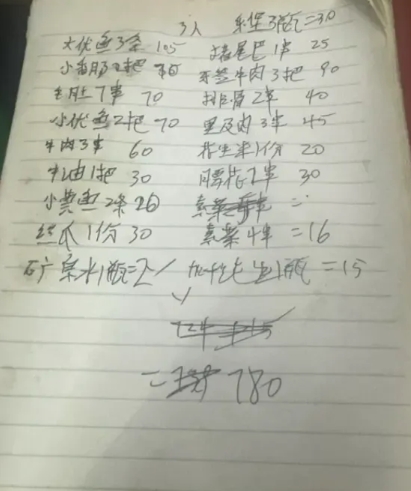 3人 3瓶=30
大优鱼3条 105 猪尾巴1串 25
小香肠2把 牙签牛肉3把 90
7串 70 排骨2串 40
小优鱼2把 70 里及肉3串 45
牛肉3串 60 花生米1份 20
牛油1把 30 腰花2串 30
小黄鱼2条 20
丝瓜1份 30 素菜4串 =16
矿泉水1瓶=2 1瓶 =15
= 780